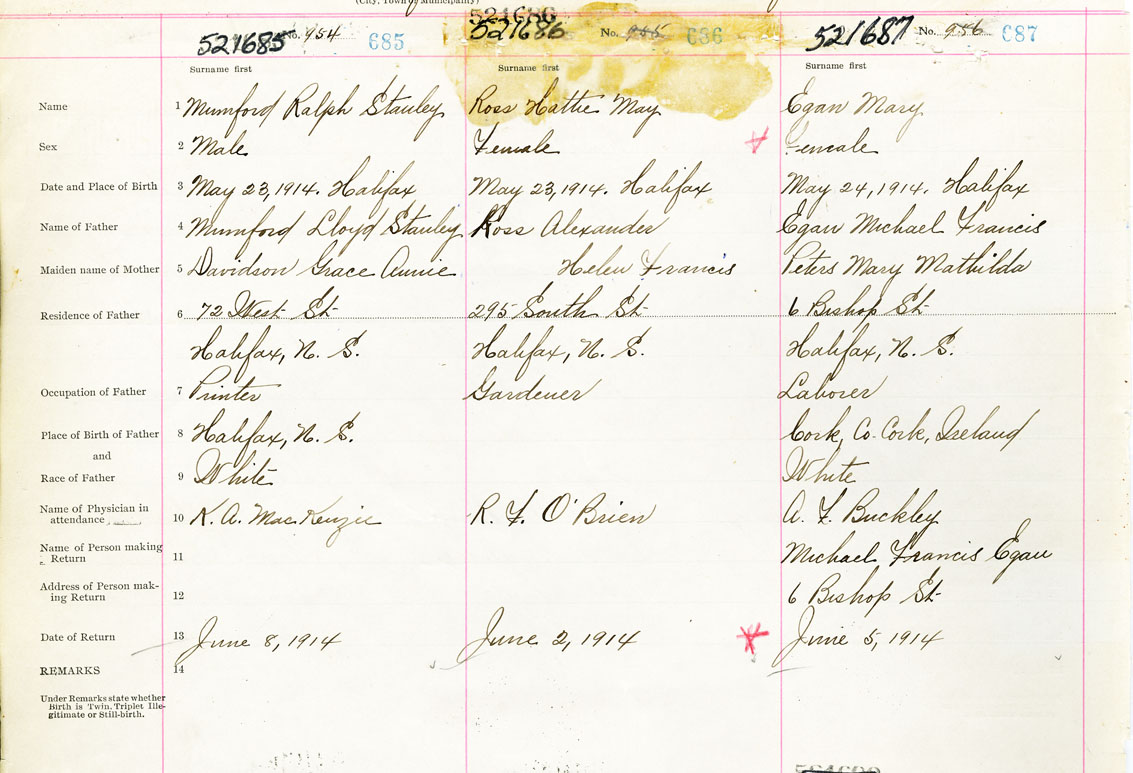 (City, Town or Municipality)
521686
521685 No. 954 685 521686 No. 955 686 521687 No. 956 687
Surname first Surname first Surname first
Name 1 Mumford Ralph Stanley Ross Hattie May Egan Mary
Sex 2 Male Female Female
Date and Place of Birth 3 May 23, 1914. Halifax May 23, 1914. Halifax May 24, 1914. Halifax
Name of Father 4 Mumford Lloyd Stanley Ross Alexander Egan Michael Francis
Maiden name of Mother 5 Davidson Grace Annie Helen Francis Peters Mary Mathilda
Residence of Father 6 72 West St 295 South St 6 Bishop St
Halifax, N. S. Halifax, N. S. Halifax, N. S.
Occupation of Father 7 Printer Gardener Laborer
Place of Birth of Father 8 Halifax, N. S. Cork, Co. Cork, Ireland
and
Race of Father 9 White White
Name of Physician in
attendance 10 K. A. MacKenzie R. F. O'Brien A. F. Buckley
Name of Person making
Return 11 Michael Francis Egan
Address of Person mak-
ing Return 12 6 Bishop St
Date of Return 13 June 8, 1914 June 2, 1914 June 5, 1914
REMARKS 14
Under Remarks state whether
Birth is Twin, Triplet Ille-
gitimate or Still-birth.